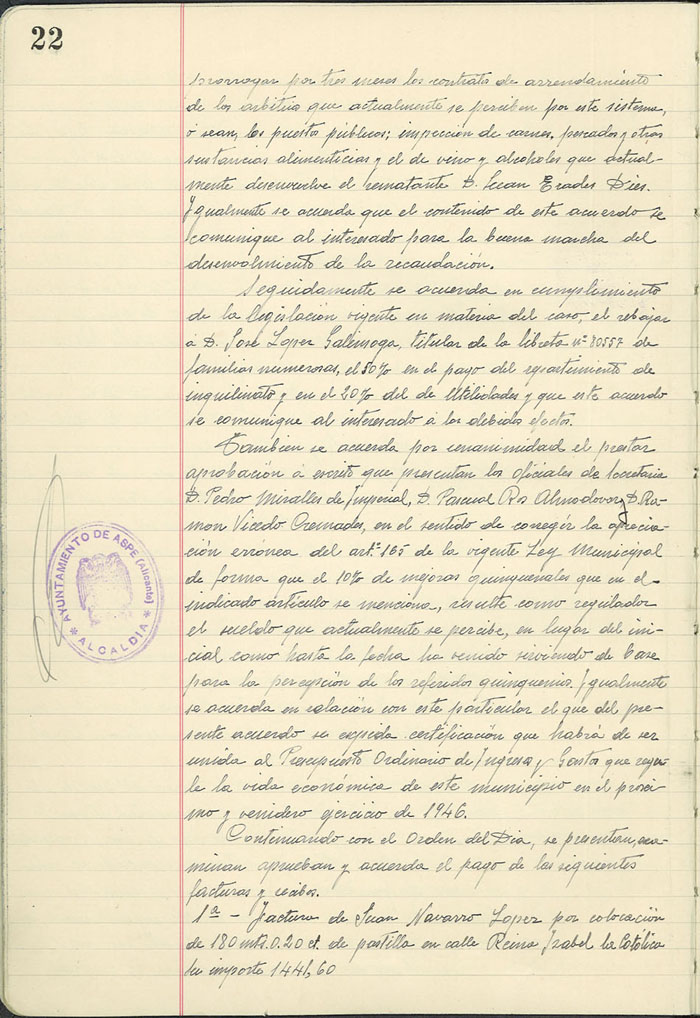 22
prorrogar por tres meses los contratos de arrendamiento
de los arbitrios que actualmente se perciben por este sistema,
o sean, los puestos públicos; inspección de carnes, pescados y otras
sustancias alimenticias y el de vino y alcoholes que actual-
mente desenvuelve el rematante D. Juan Erades Dies.
Igualmente se acuerda que el contenido de este acuerdo se
comunique al interesado para la buena marcha del
desenvolmiento de la recaudación.
Seguidamente se acuerda en cumplimiento
de la legislación vigente en materia del caso, el rebajar
á D. José Lopez Galeinoga, titular de la libreta nº 80557 de
familias numerosas, el 50% en el pago del repartimiento de
inquilinato y en el 20% del de Utilidades y que este acuerdo
se comunique al interesado a los debidos efectos.
Tambien se acuerda por unanimidad el prestar
aprobación á escrito que presentan los Oficiales de Secretaria
D. Pedro Miralles de Imperial, D. Pascual Ros Almodovar y D. Ra-
mon Vicedo Cremades, en el sentido de corregir la aprecia-
ción errónea del artº 165 de la vigente Ley Municipal
de forma que el 10% de mejoras quinquenales que en el
indicado artículo se menciona, resulte como regulador
el sueldo que actualmente se percibe, en lugar del ini-
cial como hasta la fecha ha venido sirviendo de base
para la percepción de los referidos quinquenios. Igualmente
se acuerda en relación con este particular el que del pre-
sente acuerdo se expida certificación que habrá de ser
unida al Presupuesto Ordinario de Ingresos y Gastos que regu-
le la vida económica de este municipio en el proxi-
mo y venidero ejercicio de 1946.
Continuando con el Orden del Dia, se presentan, exa-
minan aprueban y acuerda el pago de las siguientes
facturas y recibos.
1ª - Factura de Juan Navarro Lopez por colocación
de 180 mts. 0.20 ct. de pastilla en calle Reina Isabel la Católica
su importe 1441,60
AYUNTAMIENTO DE ASPE (Alicante)
* ALCALDIA *